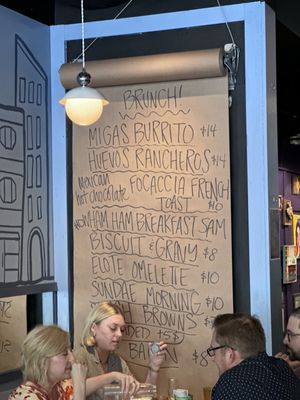 BRUNCH!
MIGAS BURRITO $14
HUEVOS RANCHEROS $14
Mexican hot chocolate FOCACCIA FRENCH
TOAST $10
HAM HAM BREAKFAST SAM
BISCUIT & GRAVY $8
ELOTE OMELETTE $10
SUNDAE MORNING $10
BROWNS
$5
$8